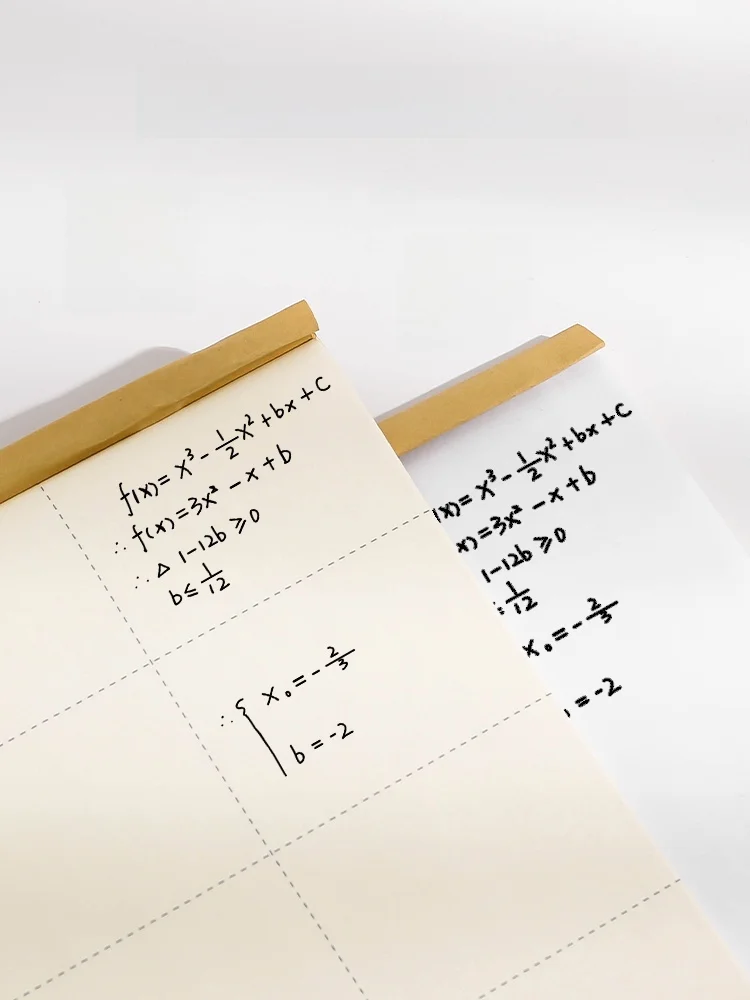 f(x)=x³-1/2x²+bx+C
∴f(x)=3x²-x+b
∴△ 1-12b≥0
b≤1/12
∴{ x₀=-2/3
b=-2
(x)=x³-1/2x²+bx+C
x)=3x²-x+b
1-12b≥0
≤1/12
x₀=-2/3
=-2